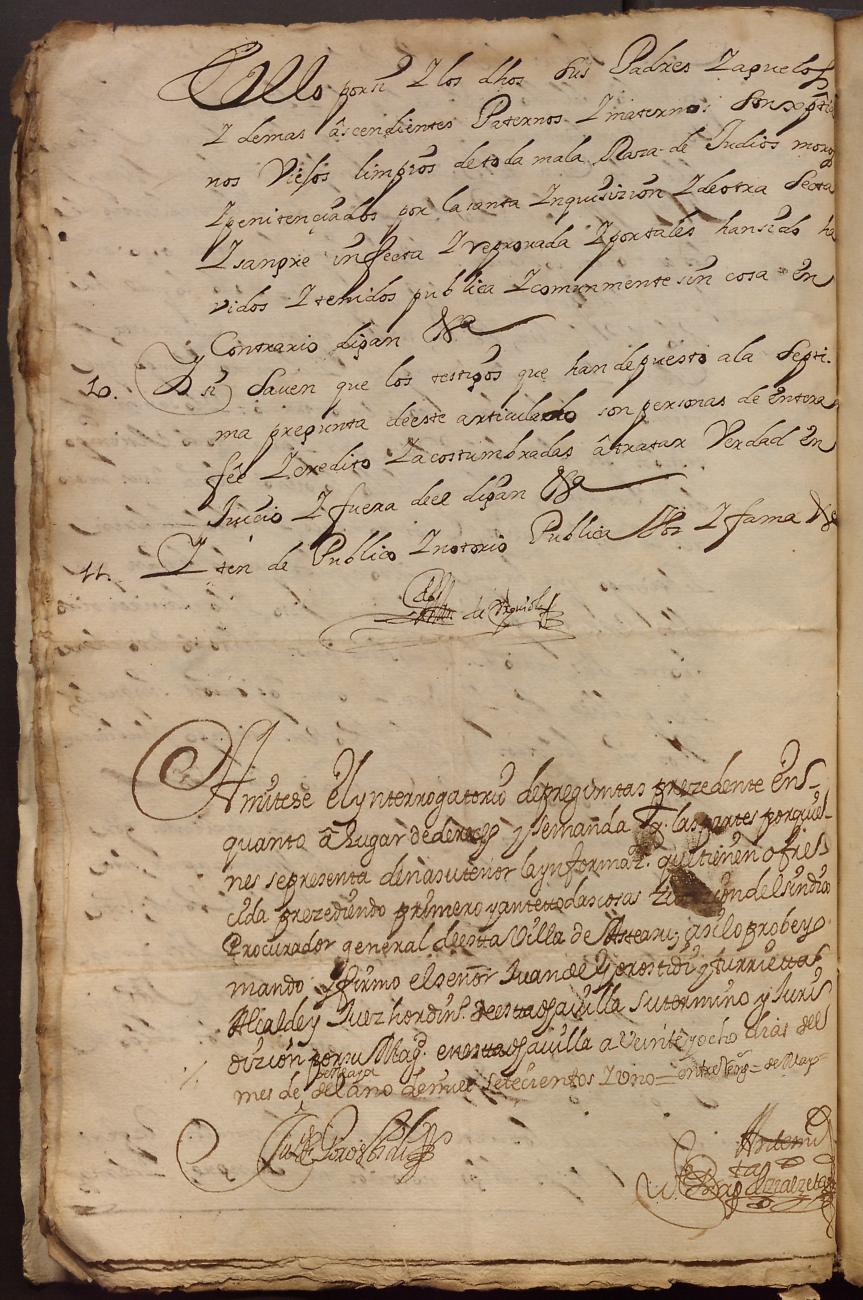 Ello por si Y los dhos sus Padres Y aguelos
Y demas âscendientes Paternos Y maternos son xptia
nos Viejos limpios de toda mala Raza de Judios moros
Y penitençiados por la santa Inquisizion Y de otra Secta
Y sangre infecta Y reprouada Y por tales han sido ha
vidos Y tenidos publica Y comunmente sin cosa En
Contrario digan &a
10. Y si Sauen que los testigos que han depuesto a la Septi-
ma pregunta de este articulado son personas de entera
fée Y credito Y acostumbradas â tratar Verdad En
Juicio Y fuera de el digan &a
11. Y ten de Publico Y notorio Publica Voz Y fama &a
de
Amitese El ynterrogatorio de preguntas prezedente En
quanto â Lugar de derecho y se manda las partes por quie-
nes se presenta den a su tenor la ynformaz.n que tienen ofres
cida prezediendo primero y ante todas cosas zitazion del sindico
Procurador general de esta Villa de asi lo probeyo
mando y firmo el señor Juan de Yrrostidi y Yurrietta
Alcalde y Juez hordin.o de esta dha villa su termino y Juris
dizion por su Mag.d en esta dha villa a Veinte y ocho dias del
mes de del año de mill setecientos Y uno = entre Reng.s =
Ante mi